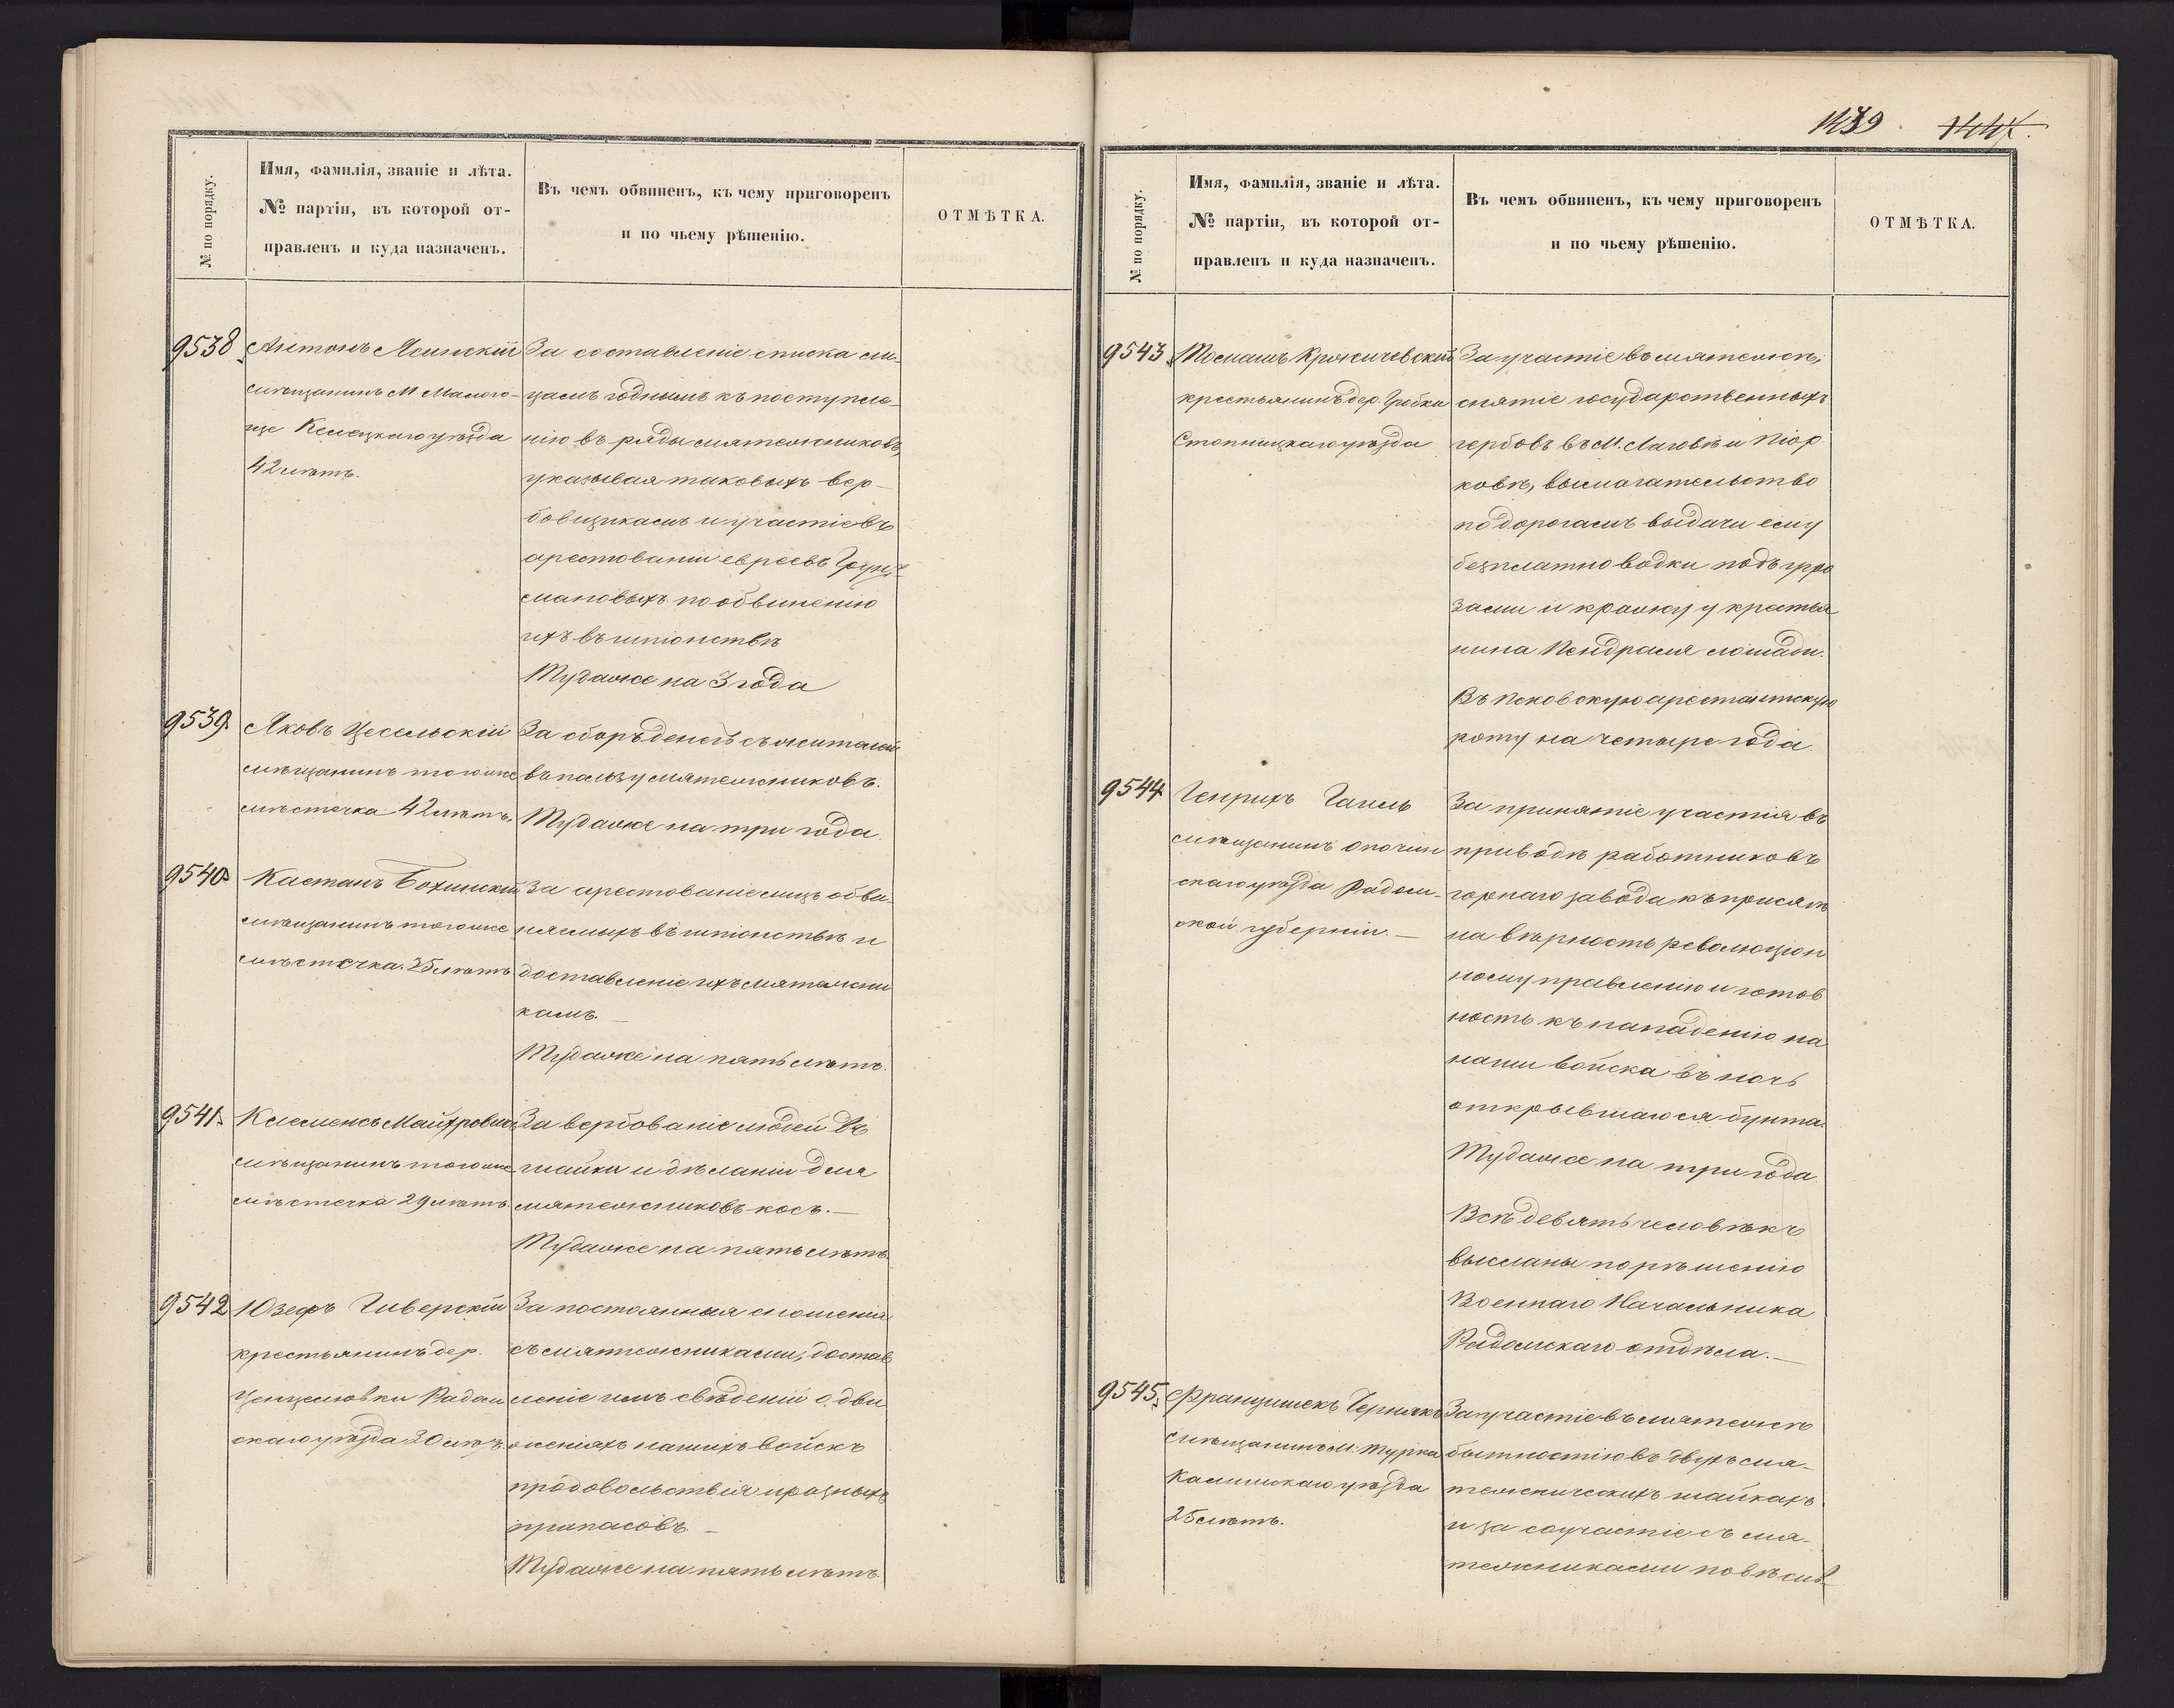 № по порядку.
Имя, фамилія, званіе и лѣта.
№ партіи, въ которой от-
правленъ и куда назначенъ.
Въ чемъ обвиненъ, къ чему приговоренъ
и по чьему рѣшенію.
ОТМѢТКА.
9538.
Антонъ Ясинскій
мѣщанинъ М Малого-
ще Келецкаго уѣзда
42 лѣтъ.
За составленіе списка ли-
цамъ годнымъ къ поступле-
нію въ ряды мятежниковъ,
указывая таковыхъ вер-
бовщикамъ и участіе въ
арестованіи евреевъ
мановыхъ по обвиненію
ихъ въ шпіонствѣ
Туда же на 3 года
9539.
Яковъ Цесельскій
мѣщанинъ того же
мѣстечка 42 лѣтъ.
За сборъ денегъ съ жителей
въ пользу мятежниковъ.
Туда же на три года.
9540.
Каетанъ Бохинскій
мѣщанинъ того же
мѣстечка. 25 лѣтъ
За арестованіе лицъ обви-
няемыхъ въ шпіонствѣ и
доставленіе ихъ мятежни
камъ. —
Туда же на пять лѣтъ.
9541.
Клеменсъ Майхровичъ
мѣщанинъ того же
мѣстечка 29 лѣтъ.
За вербованіе людей въ
шайки и дѣланіи для
мятежниковъ косъ. —
Туда же на пять лѣтъ.
9542
Юзефъ Гиверскій
крестьянинъ дер.
Ценцеловки Радом
скаго уѣзда 30 лѣтъ.
За постоянныя сношенія
съ мятежниками, достав
леніе имъ свѣденій о дви
женіяхъ нашихъ войскъ
продовольствія и разныхъ
припасовъ. —
Туда же на пять лѣтъ.
1439 1447.
№ по порядку.
Имя, фамилія, званіе и лѣта.
№ партіи, въ которой от-
правленъ и куда назначенъ.
Въ чемъ обвиненъ, къ чему приговоренъ
и по чьему рѣшенію.
ОТМѢТКА.
9543.
Томашъ Кржичевскій
крестьянинъ дер. Грабки
Стопницкаго уѣзда
За участіе въ мятежѣ,
снятіе государственныхъ
гербовъ въ М. Лаговѣ и Піор
ковѣ, вымогательство
по дорогамъ выдачи ему
безплатно водки подъ угро
зами и кражу у кретья
нина Пендраля лошади.
Въ Псковскую арестантскую
роту на четыре года.
9544.
Генрихъ Гагель
мѣщанинъ Опочин
скаго уѣзда Радом-
ской губерніи. —
За принятіе участія въ
приводѣ работниковъ
горнаго завода къ присягѣ
на вѣрность революціон
ному правленію и готов
ность къ нападенію на
наши войска въ ночь
открывшагося бунта.
Туда же на три года.
Всѣ девять человѣкъ
высланы по рѣшенію
Военнаго Начальника
Радомскаго отдѣла. —
9545.
Францишекъ Чернякъ
мѣщанинъ М. Турка
Калишскаго уѣзда
25 лѣтъ.
За участіе въ мятежѣ
бытностію въ двухъ мя-
тежническихъ шайкахъ
и за соучастіе съ мя-
тежниками повѣсив-